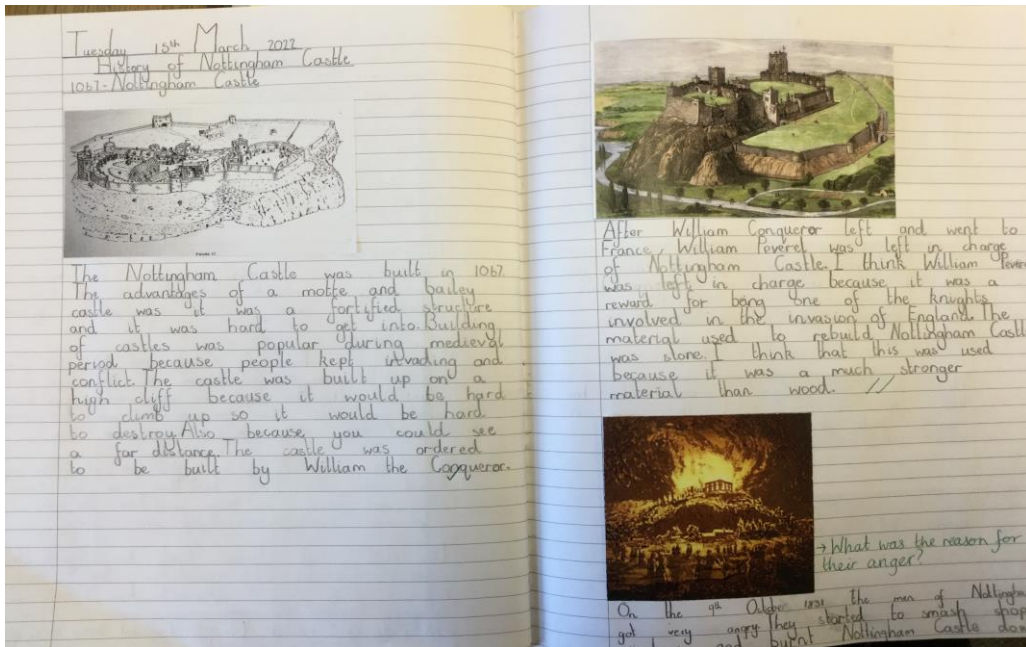 Tuesday 15th March 2022
History of Nottingham Castle
1067-Nottingham Castle
The Nottingham Castle was built in 1067.
The advantages of a motte and bailey
castle was it was a fortified structure
and it was hard to get into. Building
of castles was popular during medieval
period because people kept invading and
conflict. The castle was built up on a
high cliff because it would be hard
to climb up so it would be hard
to destroy. Also because you could see
a far distance. The castle was ordered
to be built by William the Conqueror.
After William Conqueror left and went to
France, William Peverel was left in charge
of Nottingham Castle. I think William Pevere
was left in charge because it was a
reward for being one of the knights
involved in the invasion of England. The
material used to rebuild Nottingham Castl
was stone. I think that this was used
because it was a much stronger
material than wood.
→ What was the reason for
their anger?
On the 9th October 1831 the men of Nottingha
got very angry. They started to smash shop
and burnt Nottingham Castle dow